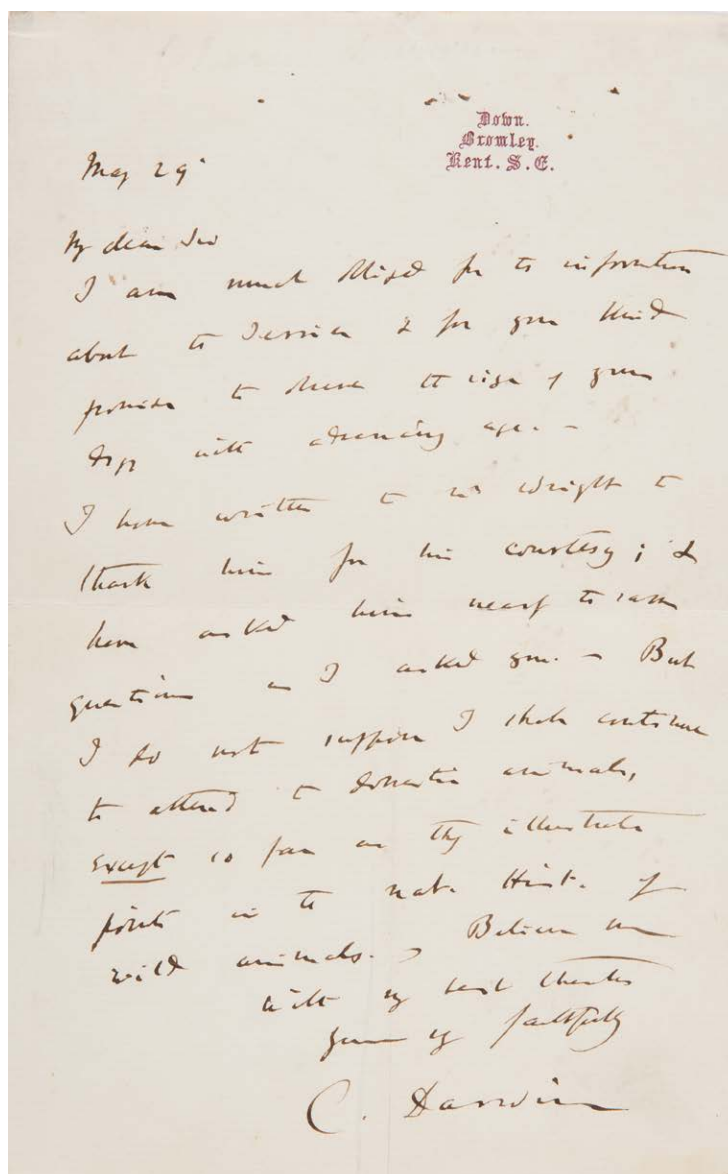 Down.
Bromley.
Kent. S.E.
May 29
My dear Sir
I am much obliged for the information
about the & for your kind
promise to observe the of your
dogs with advancing age. —
I have written to Mr Wright to
thank him for his courtesy; &
have asked him nearly the same
questions as I asked you. — But
I do not suppose I shall continue
to attend to domestic animals,
except so far as they illustrate
points in the nat. Hist. of
wild animals. — Believe me
with my best thanks
yours very faithfully
C. Darwin